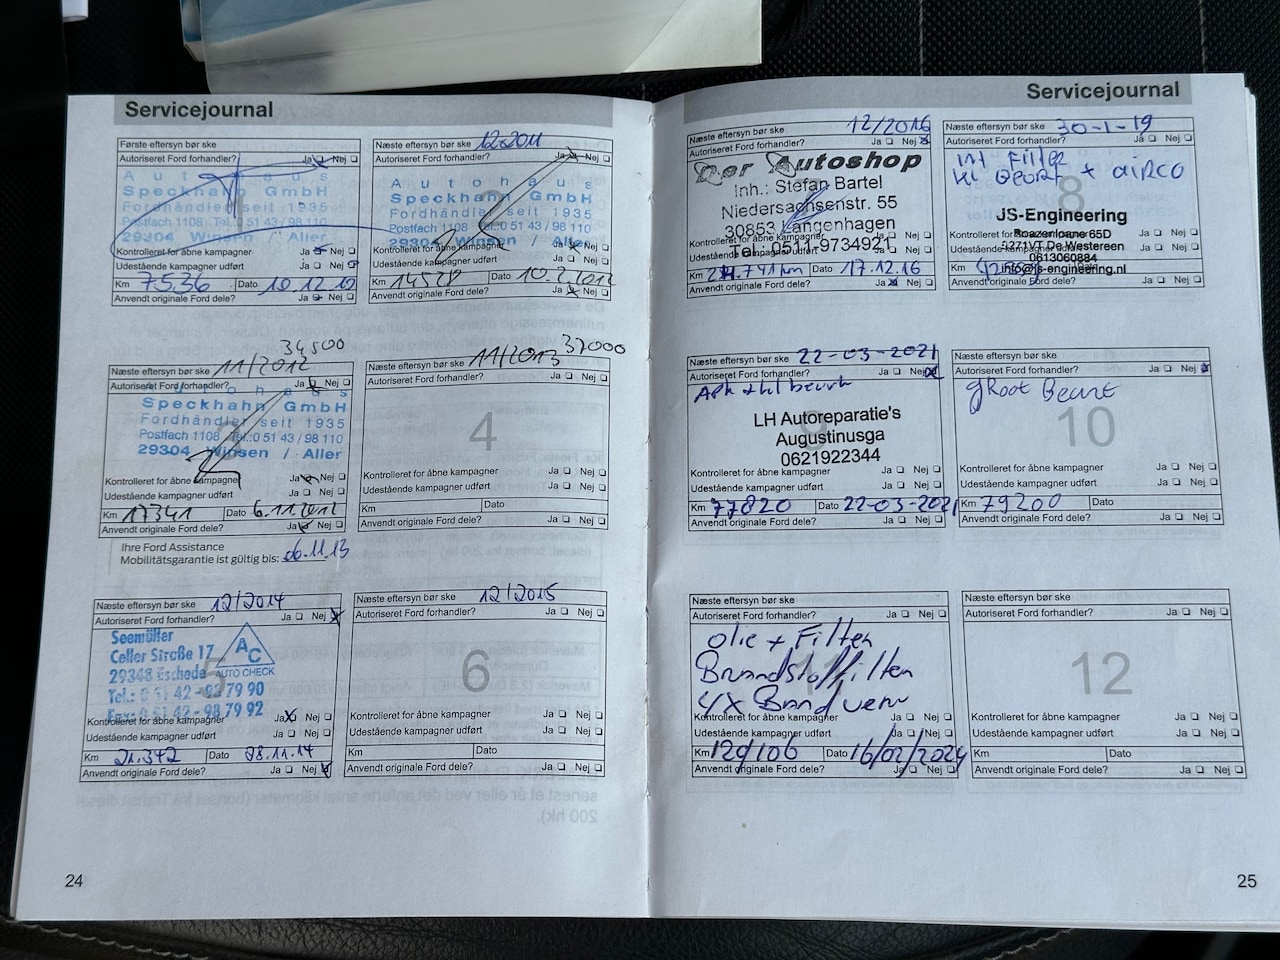 Servicejournal
Første eftersyn bør ske
Autoriseret Ford forhandler? Ja Nej
Autohaus
Speckhahn GmbH
Fordhändler seit 1935
Postfach 1108 Tel.: 0 51 43 / 98 110
29304 Winsen / Aller
Kontrolleret for åbne kampagner Ja Nej
Udestående kampagner udført Ja Nej
Km 7536 Dato 10.12.10
Anvendt originale Ford dele? Ja Nej
Næste eftersyn bør ske 12.2011
Autoriseret Ford forhandler? Ja Nej
2
Autohaus
Speckhahn GmbH
Fordhändler seit 1935
Postfach 1108 Tel.: 0 51 43 / 98 110
29304 Winsen / Aller
Kontrolleret for åbne kampagner Ja Nej
Udestående kampagner udført Ja Nej
Km Dato 10.2.2012
Anvendt originale Ford dele? Ja Nej
34500
Næste eftersyn bør ske 11/2012
Autoriseret Ford forhandler? Ja Nej
Autohaus
Speckhahn GmbH
Fordhändler seit 1935
Postfach 1108 Tel.: 0 51 43 / 98 110
29304 Winsen / Aller
Kontrolleret for åbne kampagner Ja Nej
Udestående kampagner udført Ja Nej
Km 17341 Dato 6.11.2012
Anvendt originale Ford dele? Ja Nej
Ihre Ford Assistance
Mobilitätsgarantie ist gültig bis: 06.11.13
Næste eftersyn bør ske 11/2013 37000
Autoriseret Ford forhandler? Ja Nej
4
Kontrolleret for åbne kampagner Ja Nej
Udestående kampagner udført Ja Nej
Km Dato
Anvendt originale Ford dele? Ja Nej
Næste eftersyn bør ske 12/2014
Autoriseret Ford forhandler? Ja Nej
5
Seemüller
Celler Straße 17
29348 Eschede
Tel.: 0 51 42 - 92 79 90
Fax: 0 51 42 - 98 79 92
AC
AUTO CHECK
Kontrolleret for åbne kampagner Ja Nej
Udestående kampagner udført Ja Nej
Km 21.342 Dato 28.11.14
Anvendt originale Ford dele? Ja Nej
Næste eftersyn bør ske 12/2015
Autoriseret Ford forhandler? Ja Nej
6
Kontrolleret for åbne kampagner Ja Nej
Udestående kampagner udført Ja Nej
Km Dato
Anvendt originale Ford dele? Ja Nej
24
Servicejournal
Næste eftersyn bør ske 12/2016
Autoriseret Ford forhandler? Ja Nej
Der Autoshop
Inh.: Stefan Bartel
Niedersachsenstr. 55
30853 Langenhagen
Tel.: 0511-9734921
Kontrolleret for åbne kampagner Ja Nej
Udestående kampagner udført Ja Nej
Km 24.741 km Dato 17.12.16
Anvendt originale Ford dele? Ja Nej
Næste eftersyn bør ske 30-1-19
Autoriseret Ford forhandler? Ja Nej
8
int Filter
kl Beurt + airco
JS-Engineering
Roazenloane 65D
9271VT De Westereen
0613060884
info@js-engineering.nl
Kontrolleret for åbne kampagner Ja Nej
Udestående kampagner udført Ja Nej
Km
Anvendt originale Ford dele? Ja Nej
Næste eftersyn bør ske 22-03-2021
Autoriseret Ford forhandler? Ja Nej
9
APK + kl beurt
LH Autoreparatie's
Augustinusga
0621922344
Kontrolleret for åbne kampagner Ja Nej
Udestående kampagner udført Ja Nej
Km 77820 Dato 22-03-2021
Anvendt originale Ford dele? Ja Nej
Næste eftersyn bør ske
Autoriseret Ford forhandler? Ja Nej
gRoot Beurt
10
Kontrolleret for åbne kampagner Ja Nej
Udestående kampagner udført Ja Nej
Km 79200 Dato
Anvendt originale Ford dele? Ja Nej
Næste eftersyn bør ske
Autoriseret Ford forhandler? Ja Nej
11
olie + Filter
Brandstoffilter
4x
Kontrolleret for åbne kampagner Ja Nej
Udestående kampagner udført Ja Nej
Km 129106 Dato 16/02/2024
Anvendt originale Ford dele? Ja Nej
Næste eftersyn bør ske
Autoriseret Ford forhandler? Ja Nej
12
Kontrolleret for åbne kampagner Ja Nej
Udestående kampagner udført Ja Nej
Km Dato
Anvendt originale Ford dele? Ja Nej
25